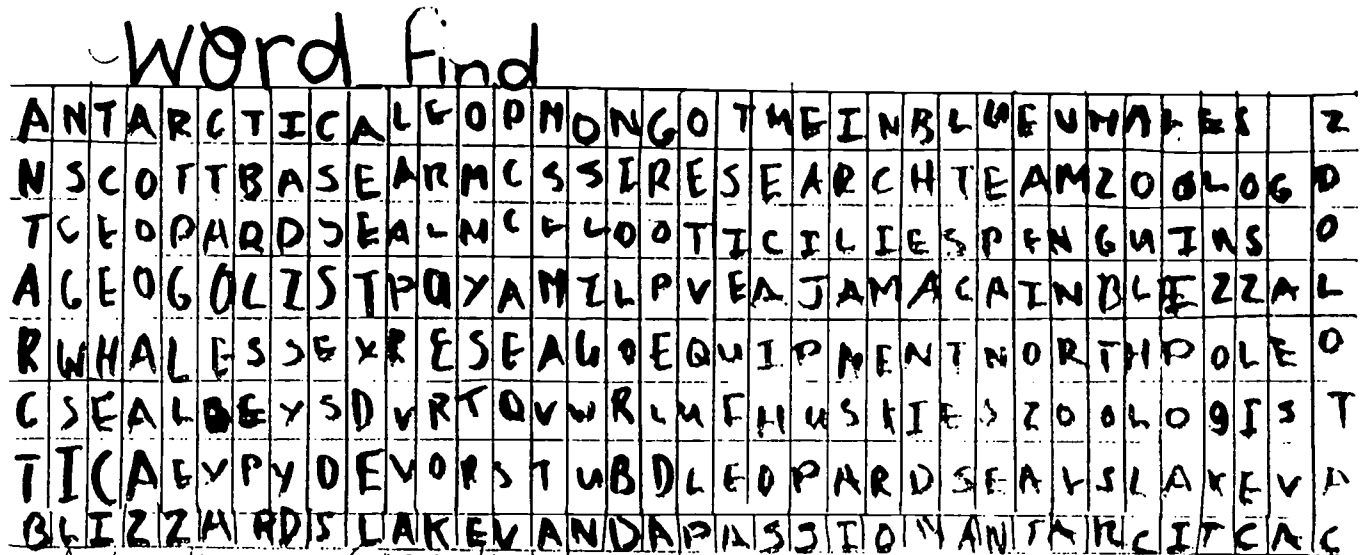 Word find
ANTARCTICALEOPMONGOTHEINBLUEWHALES Z
NSCOTTBASEARMCSSIRESEARCHTEAMZOOLOGD
TCEOPARDSEALMCELOOTICILIESPENGUINS O
AGEOGOLISTPQYAMILPVEAJAMACAINBLIZZAL
RWHALESSEXRESEAGOEQUIPMENTNORTHPOLEO
CSEALBEYSDVRTQVWRLUEHUSKIESZOOLOGIST
TICAEVPYOEVORSTUBDLEOPARDSEALSLAKEVA
BLIZZARDSLAKEVANDAPASSIONANTARCITCAC